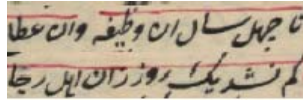 تا چهل سال ان وظیفه وان عطا
کم نشد یک روز زان اهل رجا